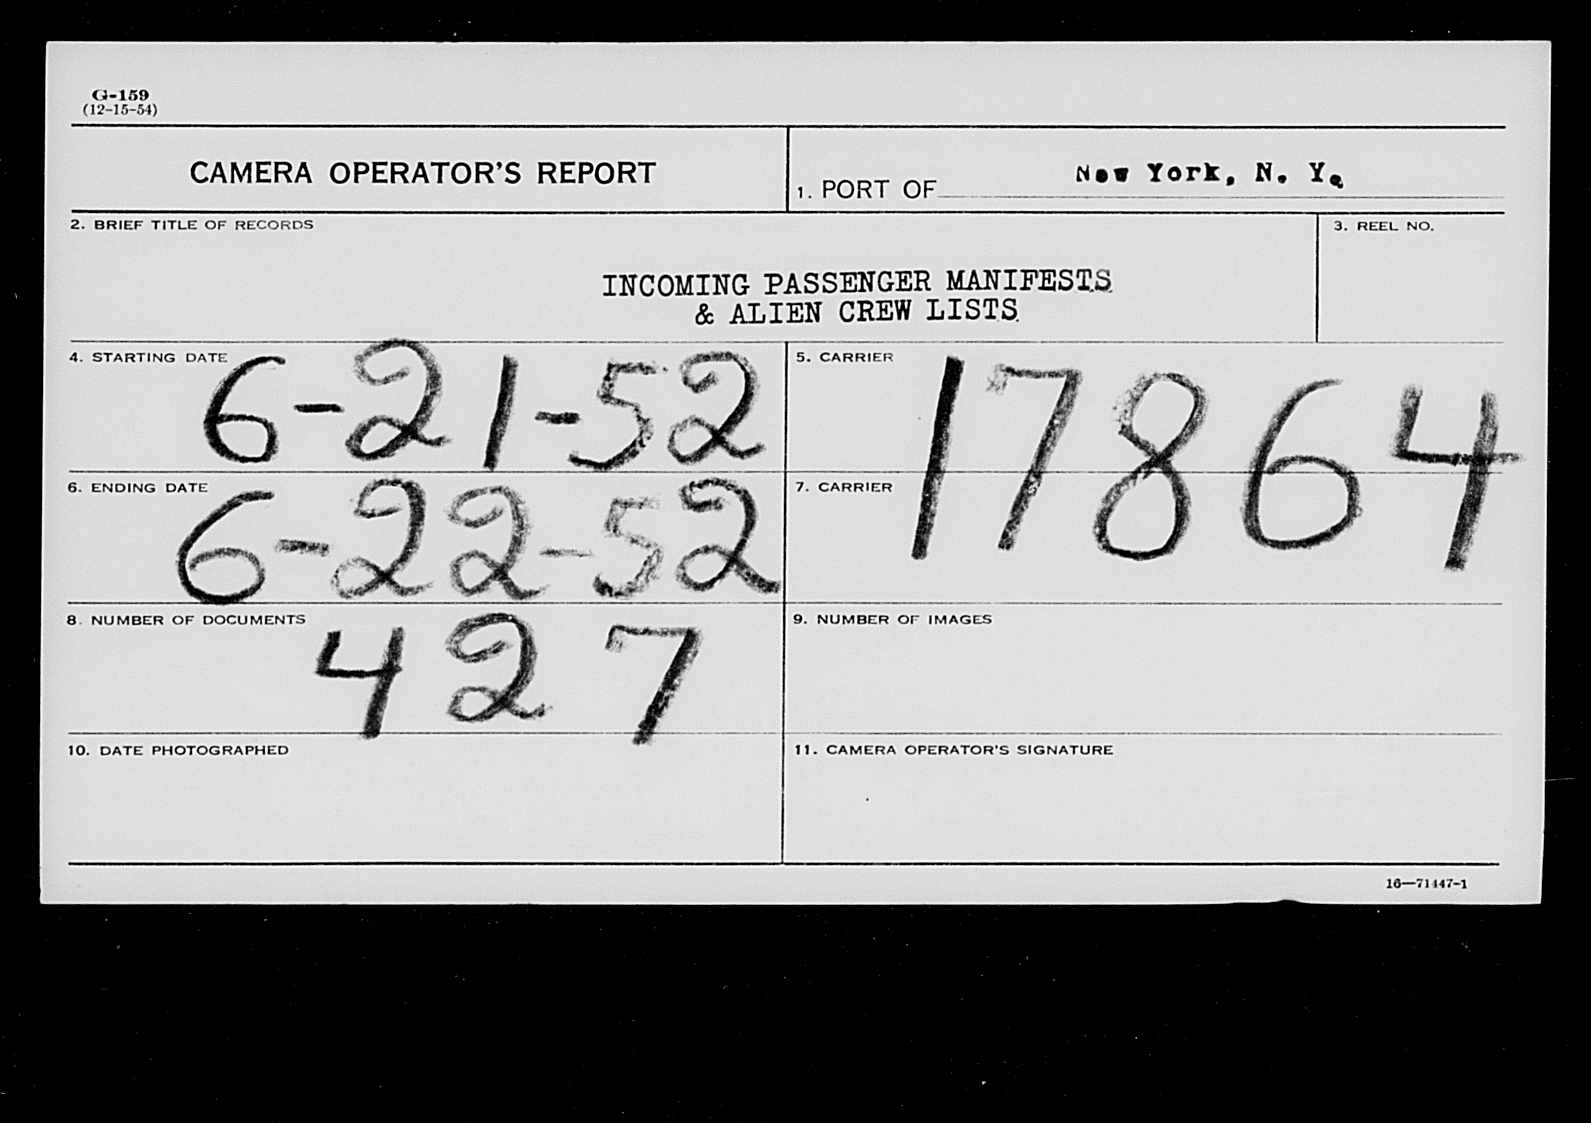 G-159
(12-15-54)
CAMERA OPERATOR'S REPORT
1. PORT OF New York, N. Y.
2. BRIEF TITLE OF RECORDS
3. REEL NO.
INCOMING PASSENGER MANIFESTS
& ALIEN CREW LISTS
4. STARTING DATE 6-21-52
5. CARRIER 17864
6. ENDING DATE 6-22-52
7. CARRIER
8. NUMBER OF DOCUMENTS 427
9. NUMBER OF IMAGES
10. DATE PHOTOGRAPHED
11. CAMERA OPERATOR'S SIGNATURE
16—71447-1